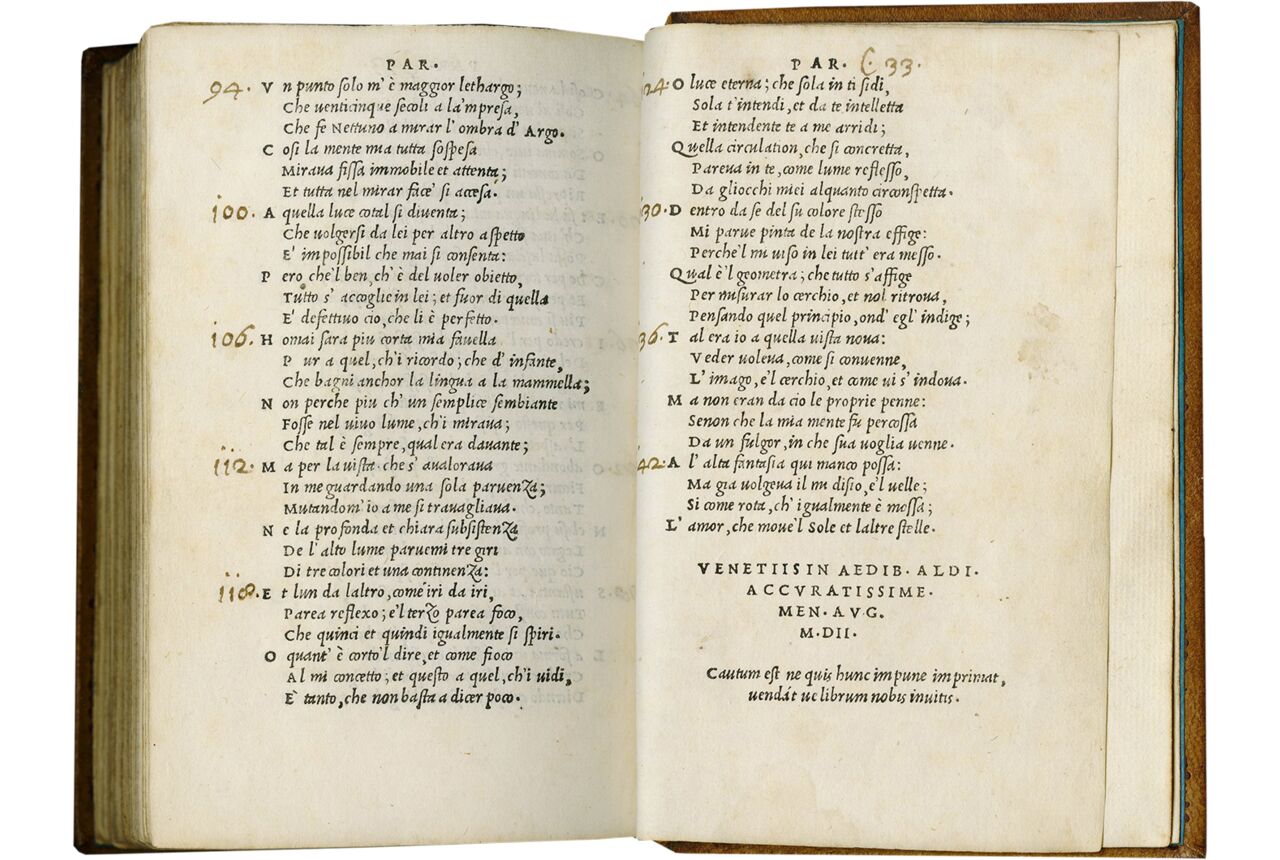 PAR.
94. V n punto solo m' è maggior lethargo;
Che uenticinque secoli a la impresa,
Che fe Nettuno a mirar l' ombra d' Argo.
C osi la mente mia tutta sospesa
Miraua fissa immobile et attenta;
Et tutta nel mirar face' si accesa.
100. A quella luce cotal si diuenta;
Che uolgersi da lei per altro aspetto
E' impossibil che mai si consenta:
P ero che'l ben, ch' è del uoler obietto,
Tutto s' accoglie in lei; et fuor di quella
E' defettiuo cio, che li è perfetto.
106. H omai sara piu corta mia fauella
P ur a quel, ch'i ricordo; che d' infante,
Che bagni anchor la lingua a la mammella;
N on perche piu ch' un semplice sembiante
Fosse nel uiuo lume, ch'i miraua;
Che tal è sempre, qual era dauante;
112. M a per la uista che s' aualoraua
In me guardando una sola paruenza;
Mutandom' io a me si trauagliaua.
N e la profonda et chiara subsistenza
De l' alto lume paruemi tre giri
Di tre colori et una continenza:
118. E t lun da laltro, com' iri da iri,
Parea reflexo; e'l terzo parea foco,
Che quinci et quindi igualmente si spiri.
O quant' è corto'l dire, et come fioco
Al mi concetto; et questo a quel, ch'i uidi,
E' tanto, che non basta a dicer poco.
PAR. C. 33.
124. O luce eterna; che sola in ti sidi,
Sola t' intendi, et da te intelletta
Et intendente te a me arridi;
Quella circulation, che si concretta,
Pareua in te, come lume reflesso,
Da gliocchi miei alquanto circonspetta.
130. D entro da se del su colore stesso
Mi parue pinta de la nostra effige:
Perche'l mi uiso in lei tutt' era messo.
Qual è'l geometra; che tutto s' affige
Per misurar lo cerchio, et nol ritroua,
Pensando quel principio, ond' egl' indige;
136. T al era io a quella uista noua:
Veder uoleua, come si conuenne,
L' imago, e'l cerchio, et come ui s' indoua.
M a non eran da cio le proprie penne:
Senon che la mia mente fu percossa
Da un fulgor, in che sua uoglia uenne.
142. A l' alta fantasia qui manco possa:
Ma gia uolgeua il mi disio, e'l uelle;
Si come rota, ch' igualmente è mossa;
L' amor, che moue'l Sole et laltre stelle.
VENETIIS IN AEDIB. ALDI.
ACCVRATISSIME.
MEN. AVG.
M.DII.
Cautum est ne quis hunc impune imprimat,
uendát ue librum nobis inuitis.